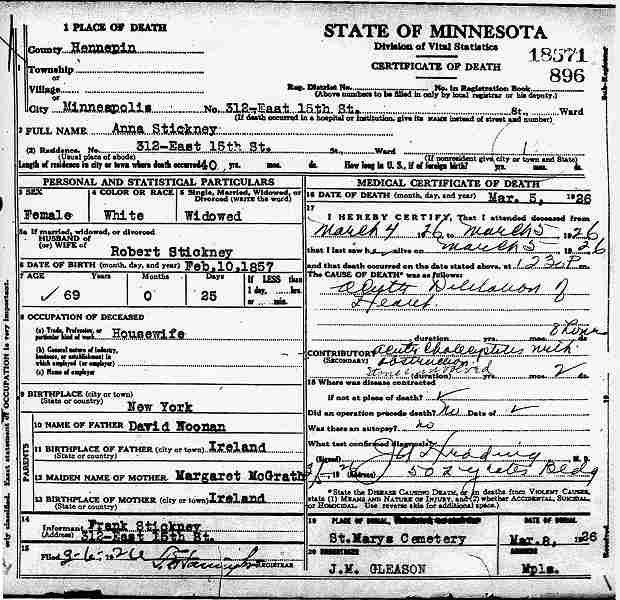 1 PLACE OF DEATH
County Hennepin
Township
or
Village
or
City Minneapolis No. 312-East 15th St. St., Ward
(If death occurred in a hospital or institution, give its NAME instead of street and number)
STATE OF MINNESOTA
Division of Vital Statistics
CERTIFICATE OF DEATH
18571
896
Reg. District No. No. in Registration Book
(Above numbers to be filled in only by local registrar or his deputy.)
2 FULL NAME Anna Stickney
(2) Residence. No. 312-East 15th St.
(Usual place of abode)
(If nonresident give city or town and State)
Length of residence in city or town where death occurred 40 yrs. mos. ds. How long in U. S., if of foreign birth? yrs. mos. ds.
PERSONAL AND STATISTICAL PARTICULARS
3 SEX
Female
4 COLOR OR RACE
White
5 Single, Married, Widowed, or Divorced (WRITE the word)
Widowed
5a If married, widowed, or divorced
HUSBAND of
(or) WIFE of
Robert Stickney
6 DATE OF BIRTH (month, day, and year) Feb.10,1857
7 AGE Years Months Days If LESS than
1 day, hrs.
or min.
69 0 25
8 OCCUPATION OF DECEASED
(a) Trade, Profession, or
particular kind of work Housewife
(b) General nature of industry,
business, or establishment in
which employed (or employer)
(c) Name of employer
9 BIRTHPLACE (city or town)
(State or country) New York
PARENTS
10 NAME OF FATHER David Noonan
11 BIRTHPLACE OF FATHER (city or town) Ireland
(State or country)
12 MAIDEN NAME OF MOTHER Margaret McGrath
13 BIRTHPLACE OF MOTHER (city or town) Ireland
(State or country)
14
Informant Frank Stickney
(Address) 312-East 15th St.
15
Filed 3-6-1926
REGISTRAR
MEDICAL CERTIFICATE OF DEATH
16 DATE OF DEATH (month, day, and year) Mar. 5, 1926
17
I HEREBY CERTIFY, That I attended deceased from
March 4 26 to March 5 1926
that I last saw h alive on March 5 1926
and that death occurred on the date stated above, at 1230 P m.
The CAUSE OF DEATH* was as follows:
Acute Dilitation of
Heart
(duration) yrs. mos. 8 hours
CONTRIBUTORY
(SECONDARY)
with
obstruction
(duration) yrs. mos. 2
18 Where was disease contracted
if not at place of death?
Did an operation precede death? No Date of
Was there an autopsy? no
What test confirmed diagnosis?
(Signed) M. D.
3/5, 1926 (Address) 502 Yates Bldg
*State the DISEASE CAUSING DEATH, or in deaths from VIOLENT CAUSES, state (1) MEANS AND NATURE OF INJURY, and (2) whether ACCIDENTAL, SUICIDAL, or HOMICIDAL. Use reverse side for additional space.
19 PLACE OF BURIAL DATE OF BURIAL
St.Marys Cemetery Mar.8, 1926
20 ADDRESS
J.M. GLEASON Mpls.